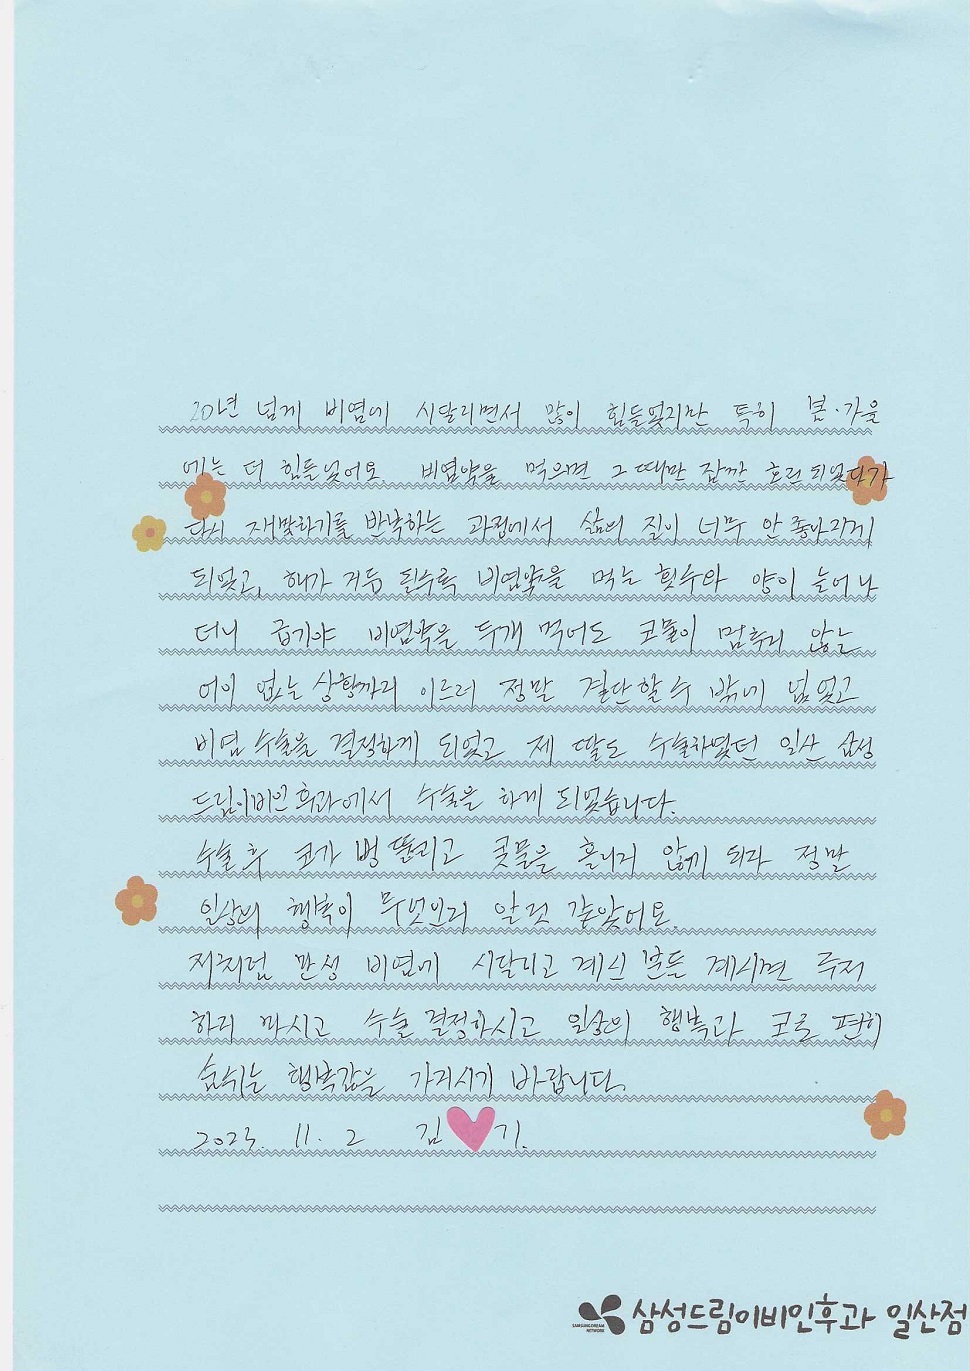 20년 넘게 비염에 시달리면서 많이 힘들었지만 특히 봄·가을
에는 더 힘들었어요. 비염약을 먹으면 그때만 잠깐 호전되었다가
다시 재발하기를 반복하는 과정에서 삶의 질이 너무 안 좋아지게
되었고, 해가 거듭 될수록 비염약을 먹는 횟수와 양이 늘어나
더니 급기야 비염약을 두개 먹어도 코물이 멈추지 않는
어이 없는 상황까지 이르러 정말 결단할 수 밖에 없었고
비염 수술을 결정하게 되었고 제 딸도 수술하였던 일산 삼성
드림이비인후과에서 수술을 하게 되었습니다.
수술 후 코가 뻥 뚫리고 콧물을 흘리지 않게 되자 정말
일상의 행복이 무엇인지 알 것 같았어요.
저처럼 만성 비염에 시달리고 계신 분들 계시면 주저
하지 마시고 수술 결정하시고 일상의 행복과 코로 편히
숨쉬는 행복감을 가지시기 바랍니다.
2023. 11. 2 김 기.
SAMSUNG DREAM NETWORK
삼성드림이비인후과 일산점